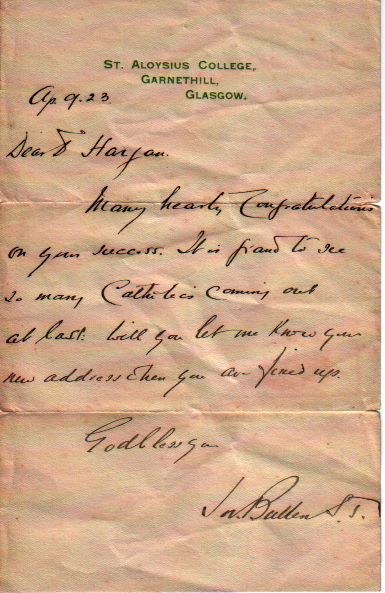 ST. ALOYSIUS COLLEGE,
GARNETHILL,
GLASGOW.
Ap. 9. 23.
Dear Dr Hargan.
Many hearty Congratulations
on your success. It is grand to see
so many Catholics coming out
at last. Will you let me know your
new address when you are fixed up.
God bless you
Bullen S.J.